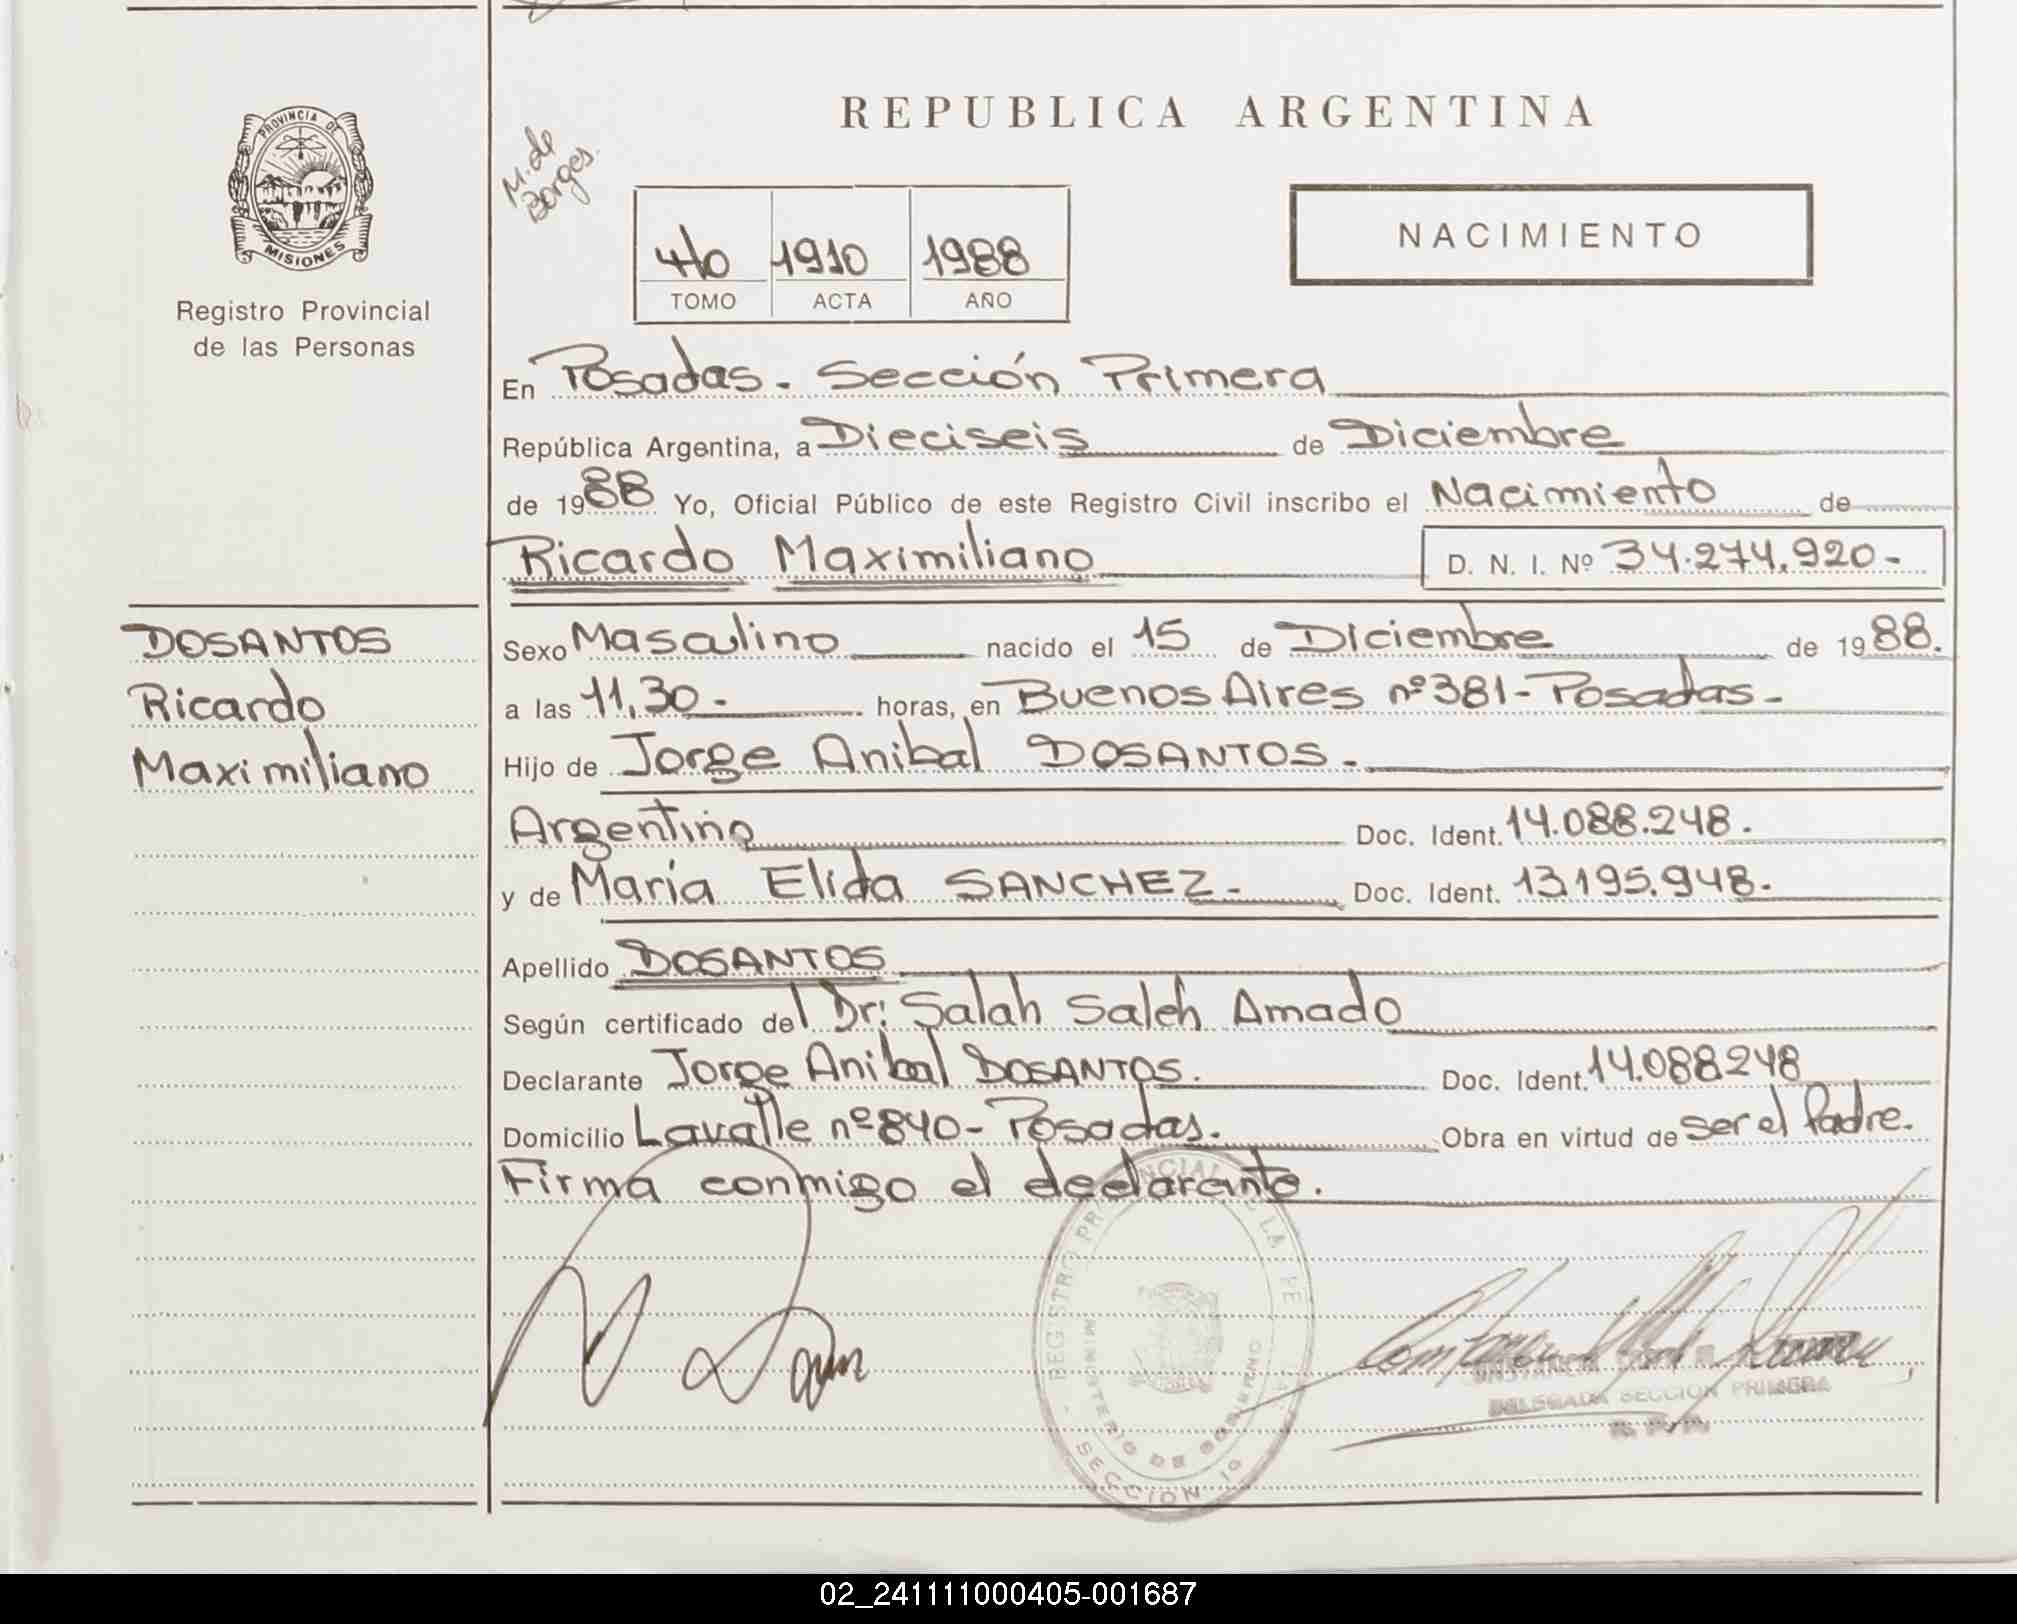 REPUBLICA ARGENTINA
M. de
Borges.
PROVINCIA DE
MISIONES
Registro Provincial
de las Personas
NACIMIENTO
4to 1910 1988
TOMO ACTA AÑO
En Posadas - Sección Primera
República Argentina, a Dieciseis de Diciembre
de 1988 Yo, Oficial Público de este Registro Civil inscribo el Nacimiento de
Ricardo Maximiliano D. N. I. Nº 34.274.920-
DOSANTOS
Ricardo
Maximiliano
Sexo Masculino nacido el 15 de Diciembre de 1988.
a las 11,30- horas, en Buenos Aires nº 381 - Posadas -
Hijo de Jorge Anibal DOSANTOS.-
Argentino Doc. Ident. 14.088.248.
y de María Elida SANCHEZ.- Doc. Ident. 13.195.948.
Apellido DOSANTOS
Según certificado del Dr: Salah Saleh Amado
Declarante Jorge Anibal DOSANTOS. Doc. Ident. 14.088248
Domicilio Lavalle nº 840 - Posadas. Obra en virtud de ser el Padre.
Firma conmigo el declarante.
REGISTRO PROVINCIAL DE LA
MINISTERIO DE GOBIERNO
SECCION 1a
DELEGADA SECCION PRIMERA
02_241111000405-001687